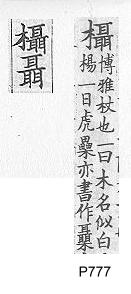 欇
博雅杖也一曰木名似白
楊一曰虎櫐亦書作
欇
P777